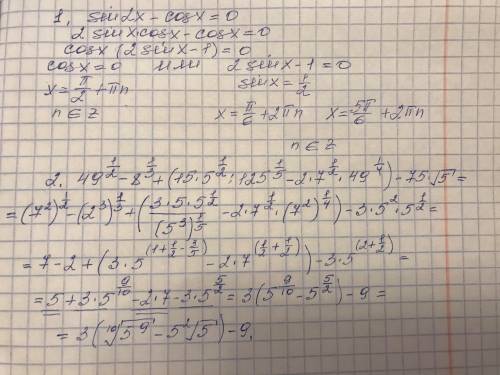 1. sin2x - cosx = 0
2 sinx·cosx - cosx = 0
cosx (2 sinx - 1) = 0
cosx = 0 или 2 sinx - 1 = 0
x = π/2 + πn sinx = 1/2
n ∈ Z x = π/6 + 2πn x = 5π/6 + 2πn
n ∈ Z
2. 49^(1/2) - 8^(1/3) + (15·5^(1/2) : 125^(1/5) - 2·7^(1/2)·49^(1/4)) - 75·√5 =
= (7²)^(1/2) - (2³)^(1/3) + (3·5·5^(1/2)/(5³)^(1/5) - 2·7^(1/2)·(7²)^(1/4)) - 3·5²·5^(1/2) =
= 7 - 2 + (3·5^(1+1/2-3/5) - 2·7^(1/2+1/2)) - 3·5^(2+1/2) =
= 5 + 3·5^(9/10) - 2·7 - 3·5^(5/2) = 3(5^(9/10) - 5^(5/2)) - 9 =
= 3(¹⁰√5⁹ - 5²√5) - 9.